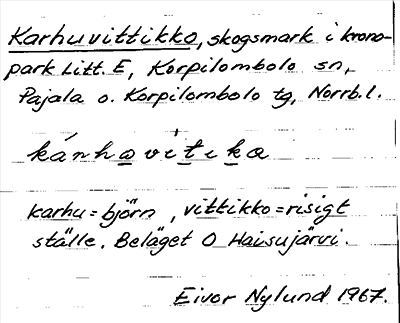 Karhuvittikko, skogsmark i krono-
park Litt. E, Korpilombolo sn,
Pajala o. Korpilombolo tg, Norrb. l.
kánhavítika
karhu = björn, vittikko = risigt
ställe. Beläget O Haisujärvi.
Eivor Nylund 1967.